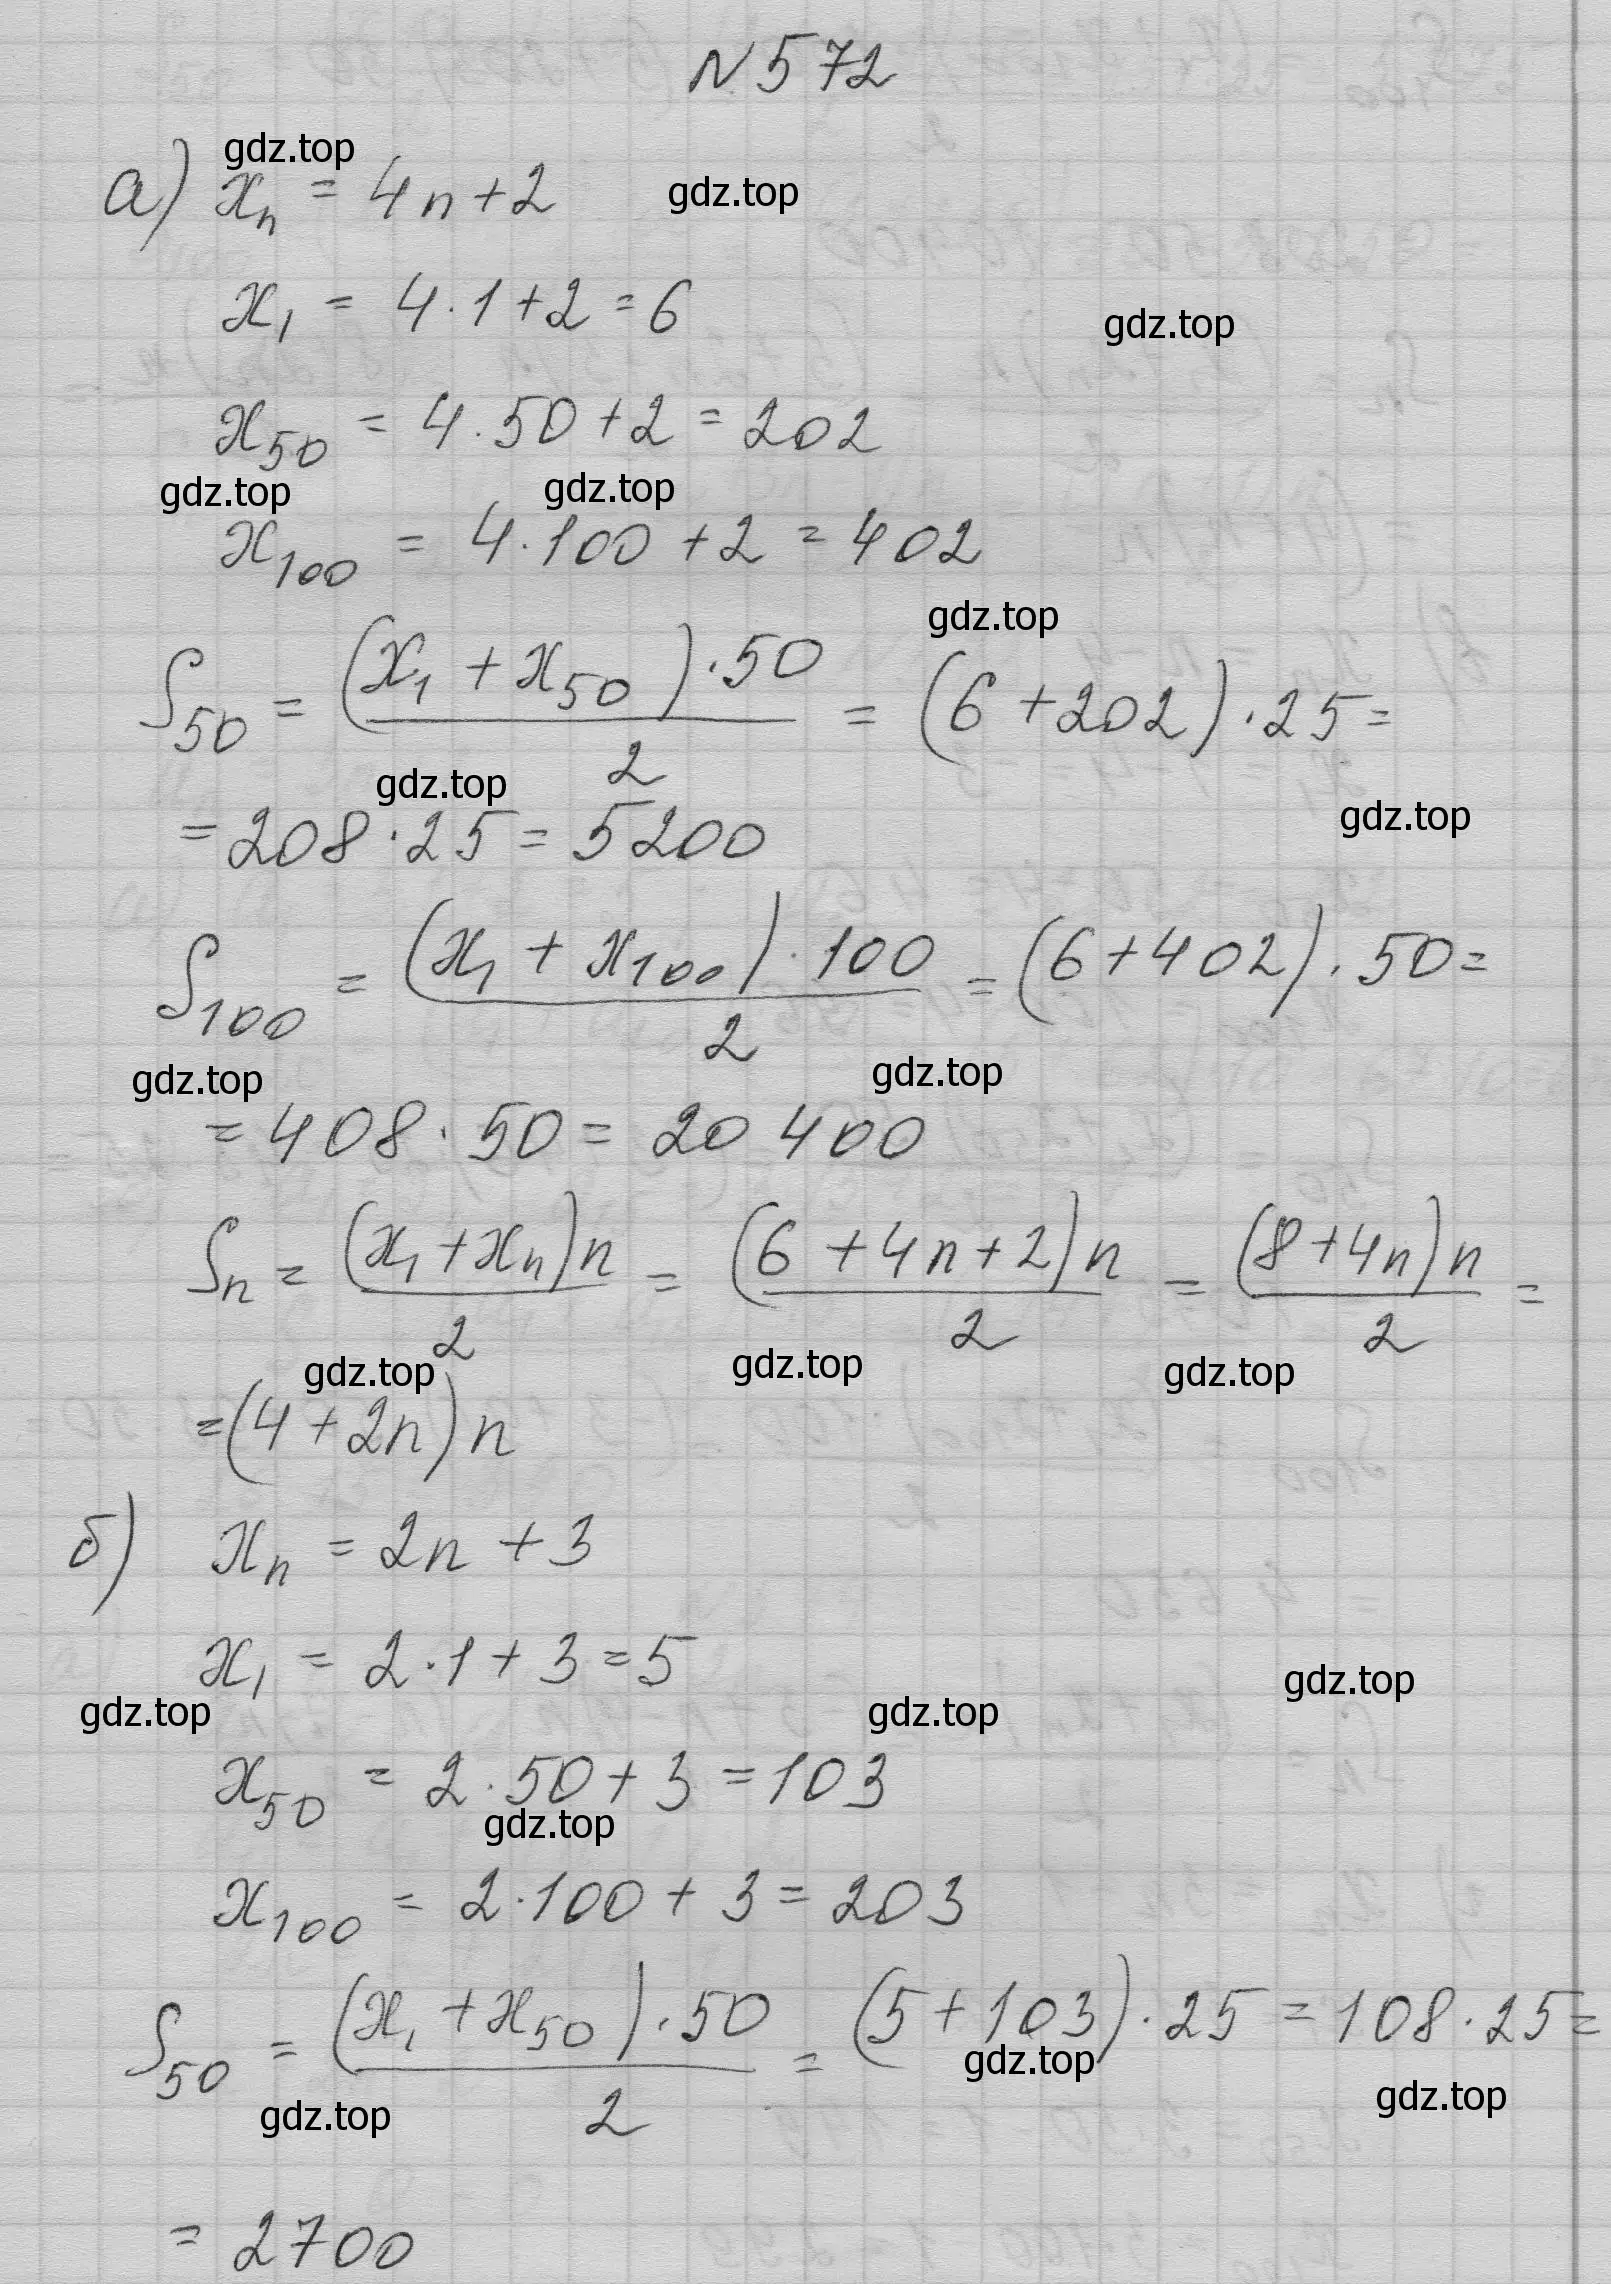 N 572
gdz.top
а) xₙ = 4n + 2
gdz.top
x₁ = 4·1 + 2 = 6
gdz.top
x₅₀ = 4·50 + 2 = 202
gdz.top
gdz.top
x₁₀₀ = 4·100 + 2 = 402
gdz.top
S₅₀ = (x₁ + x₅₀)·50 / 2 = (6 + 202)·25 =
gdz.top
gdz.top
= 208·25 = 5200
S₁₀₀ = (x₁ + x₁₀₀)·100 / 2 = (6 + 402)·50 =
gdz.top
gdz.top
= 408·50 = 20 400
Sₙ = (x₁ + xₙ)n / 2 = (6 + 4n + 2)n / 2 = (8 + 4n)n / 2 =
gdz.top
gdz.top
gdz.top
= (4 + 2n)n
б) xₙ = 2n + 3
x₁ = 2·1 + 3 = 5
gdz.top
gdz.top
gdz.top
x₅₀ = 2·50 + 3 = 103
gdz.top
x₁₀₀ = 2·100 + 3 = 203
S₅₀ = (x₁ + x₅₀)·50 / 2 = (5 + 103)·25 = 108·25 =
gdz.top
gdz.top
gdz.top
= 2700